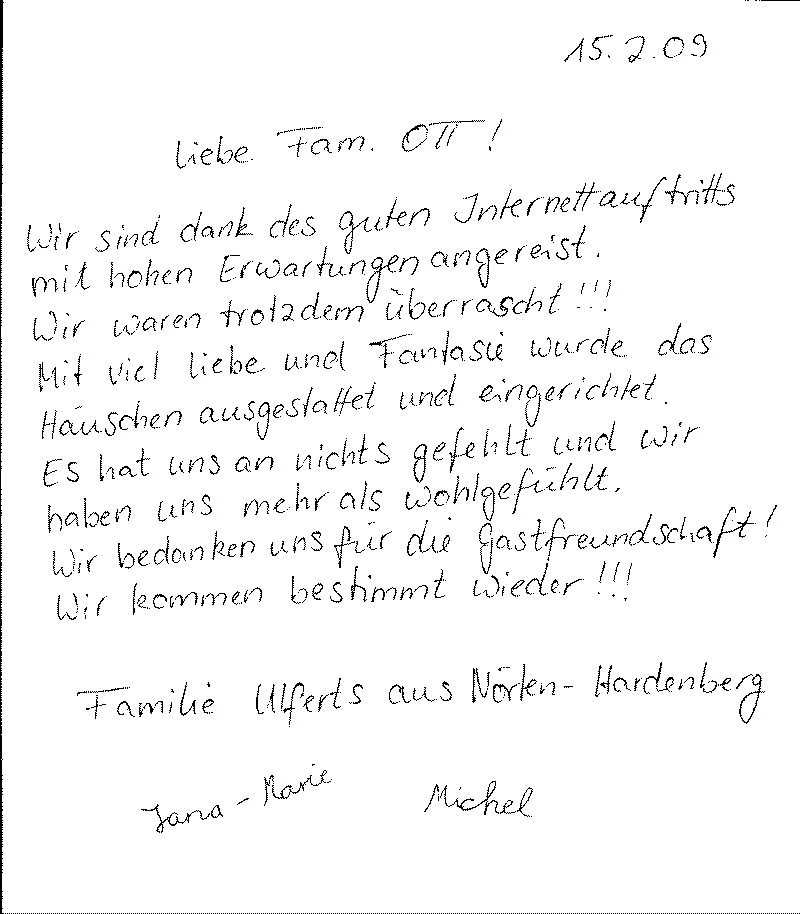 15.2.09
Liebe Fam. Ott!
Wir sind dank des guten Internettauftritts
mit hohen Erwartungen angereist.
Wir waren trotzdem überrascht!!!
Mit viel Liebe und Fantasie wurde das
Häuschen ausgestattet und eingerichtet.
Es hat uns an nichts gefehlt und wir
haben uns mehr als wohlgefühlt.
Wir bedanken uns für die Gastfreundschaft!
Wir kommen bestimmt wieder!!!
Familie Ulferts aus Nörten-Hardenberg
Jana-Marie Michel